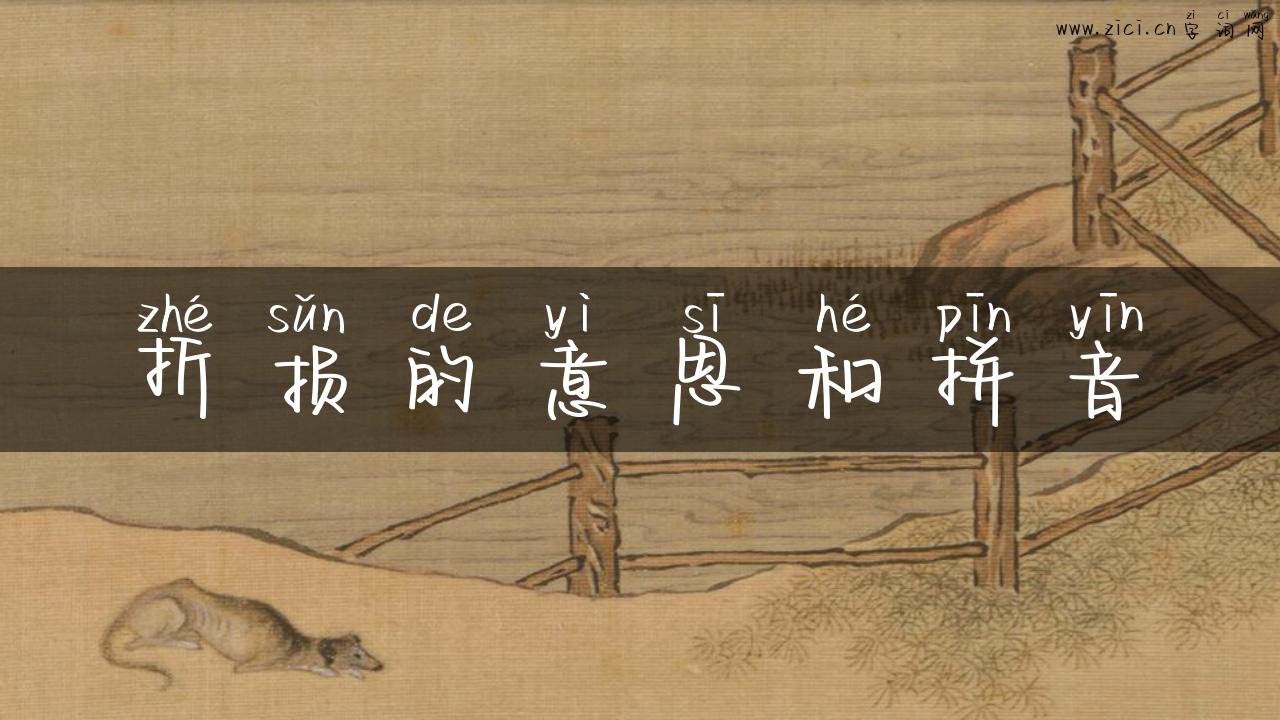 zi ci wang
www.zici.cn字词网
zhé sǔn de yì sī hé pīn yīn
折损的意思和拼音